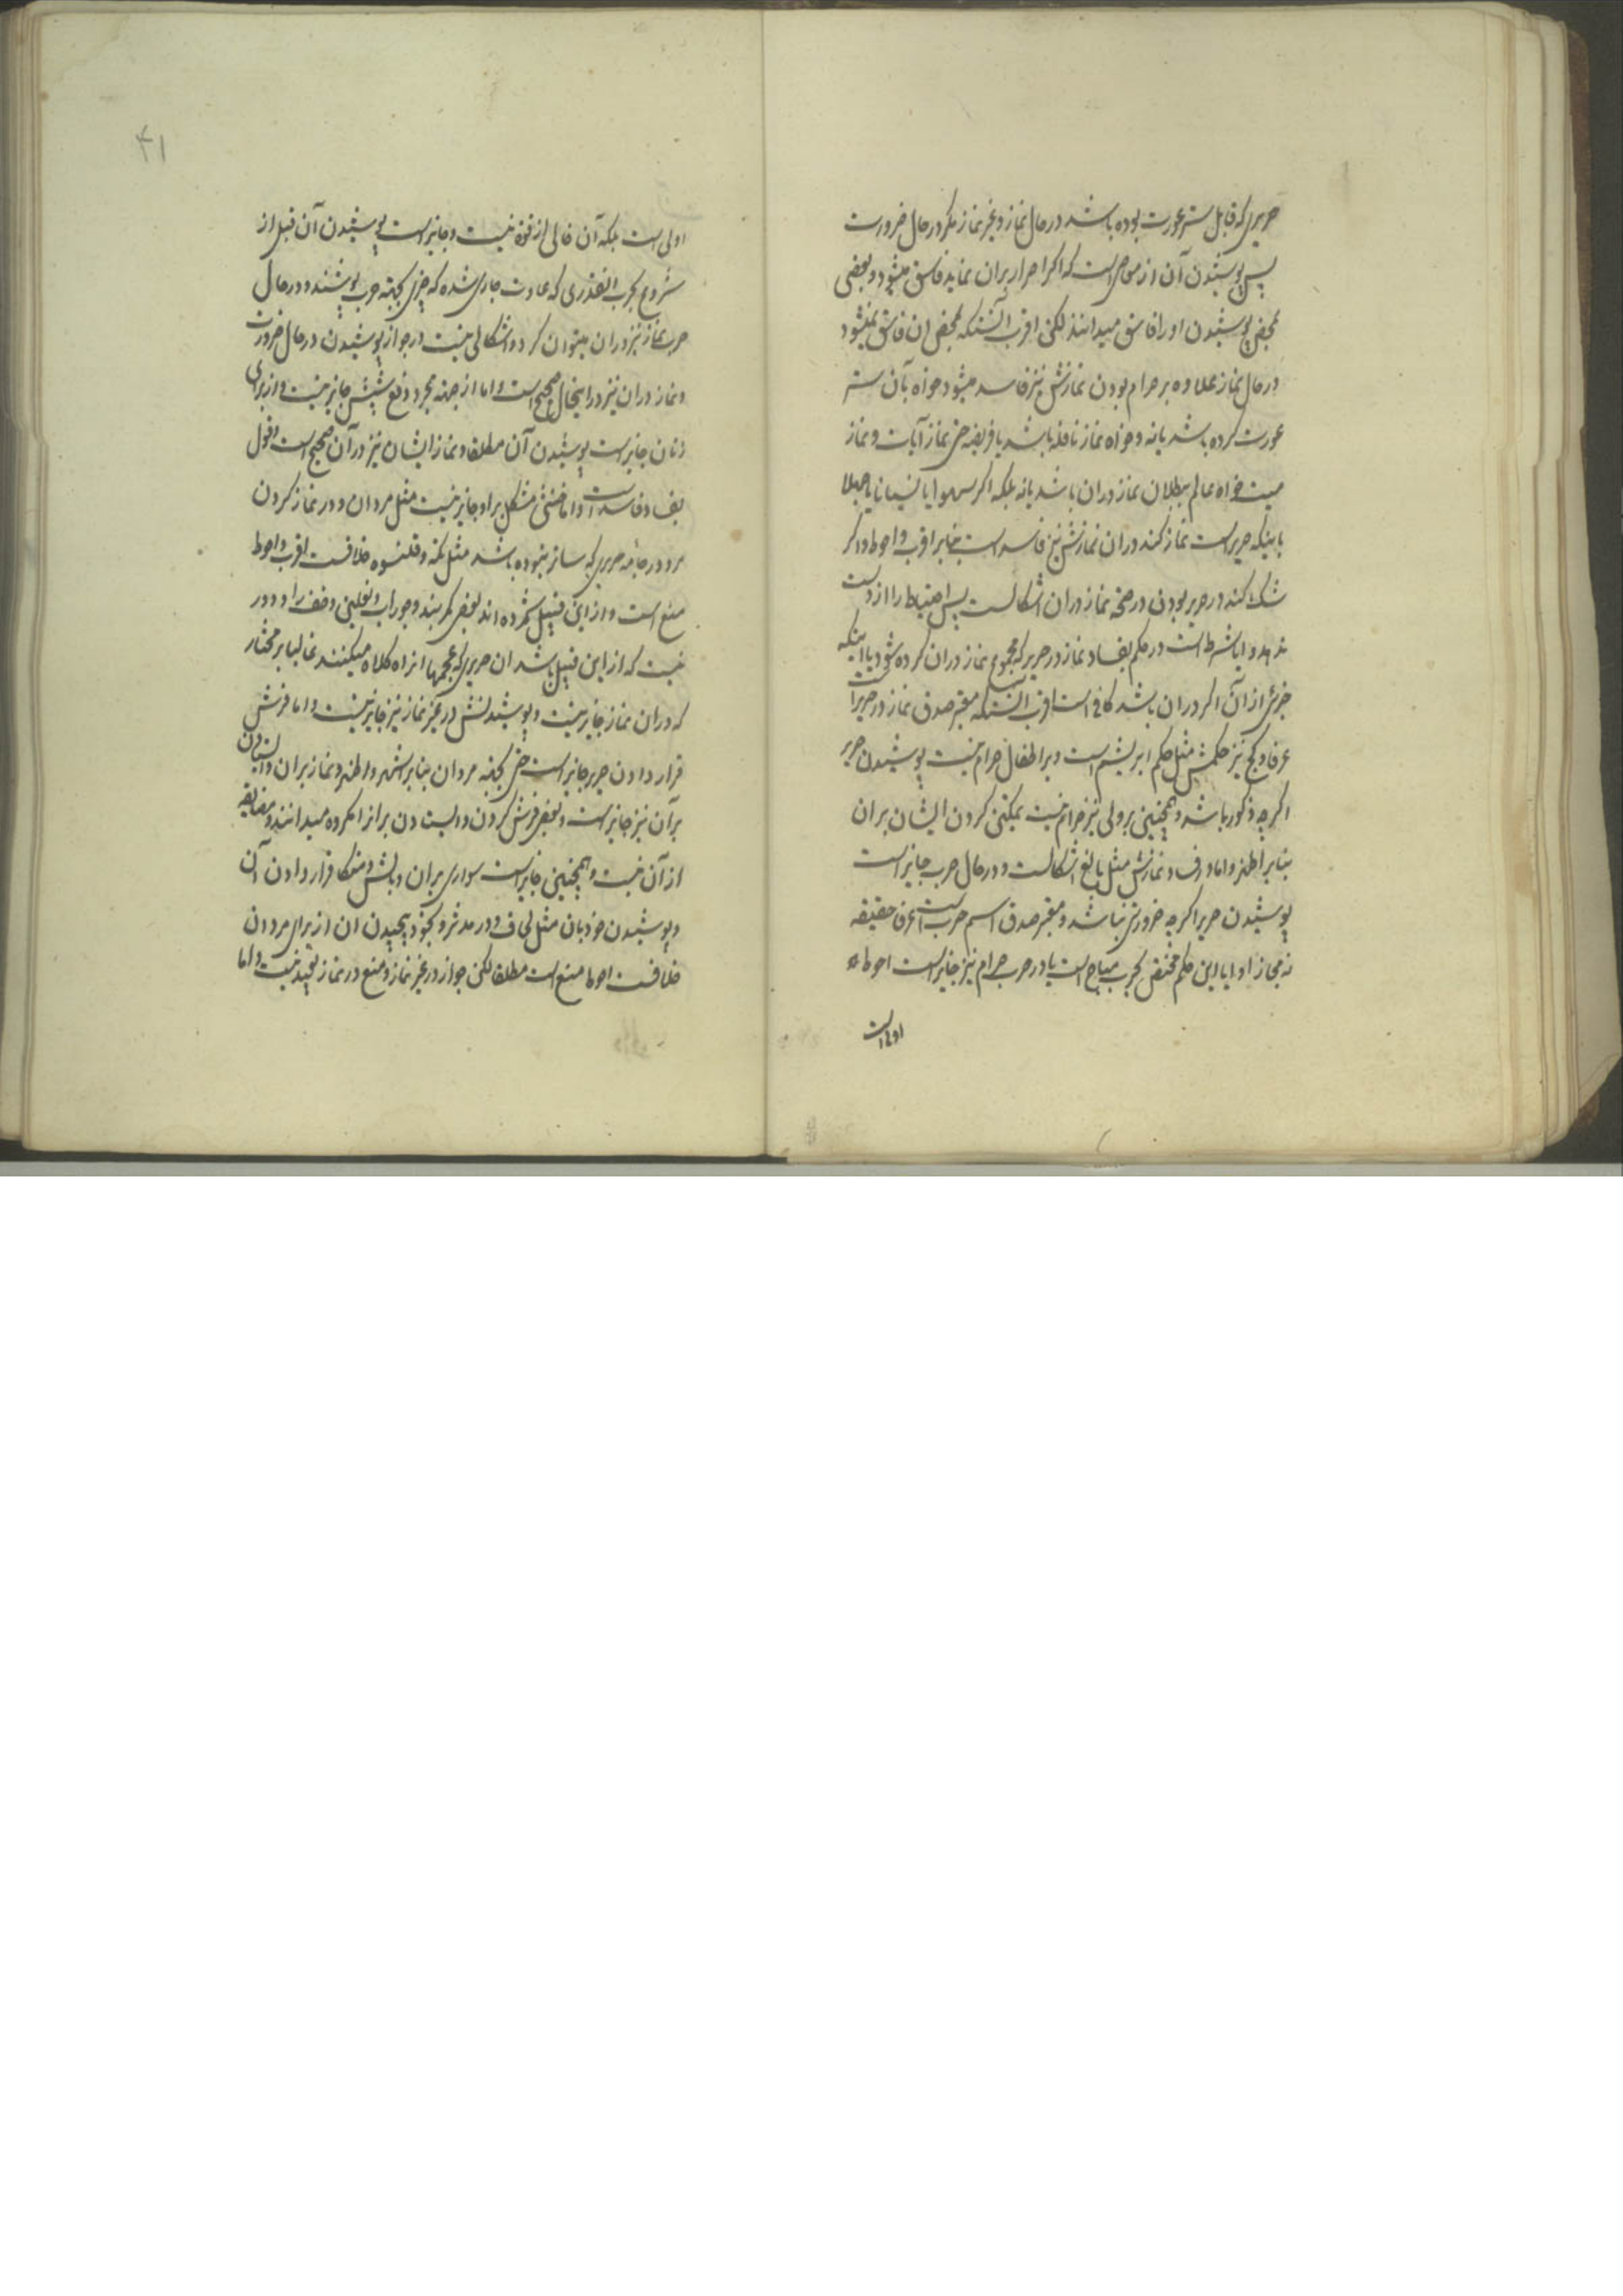 حریری که قابل ستر عورت بوده باشد در حال نماز و غیر نماز مکر در حال ضرورت
پس پوشیدن آن از معاصی است که اکر اصرار بران نماید فاسق میشود و بعضی
بمحض پوشیدن او را فاسق میدانند لکن اقرب آنستکه بمحض ان فاسق نمیشود
در حال نماز علاوه بر حرام بودن نمازش نیز فاسد میشود خواه بآن ستر
عورت کرده باشد یا نه و خواه نماز نافله باشد یا فریضه حتی نماز آیات و نماز
میت خواه عالم ببطلان نماز دران باشد یا نه بلکه اکر سهوا یا نسیانا یا جهلا
باینکه حریر است نماز کند دران نمازش نیز فاسد است بنابر اقرب و احوط و اکر
شک کند در حریر بودن در صحة نماز دران اشکالست پس احتیاط را از دست
ندهد و ایا شرط است در حکم بفساد نماز در حریر که مجموع نماز دران کرده شود یا اینکه
جزئی از آن اکر دران باشد کافی است اقرب آنستکه معتبر صدق نماز در حریر است
عرفا و کج نیز حکمش مثل حکم ابریشم است و بر اطفال حرام نیست پوشیدن حریر
اکرچه ذکور باشد و همچنین بر ولی نیز حرام نیست تمکین کردن ایشان بران
بنابر اظهر و اما در فساد نمازش مثل بالغ اشکالست و در حال حرب جایز است
پوشیدن حریر اکرچه ضرورتی نباشد و معتبر صدق اسم حرب است عرفا حقیقه
نه مجاز او ایا این حکم مختص بحرب مباح است یا در حرب حرام نیز جایز است احوط
اولی است
۴۱
اولی است بلکه آن خالی از قوة نیست و جایز است پوشیدن آن قبل از
شروع بحرب انقدری که عادت جاری شده که حریر بجهة حرب پوشند و در حال
حرب نماز نیز دران میتوان کرد و اشکالی نیست در جواز پوشیدن در حال ضرورت
و نماز دران نیز در اینحال صحیح است و اما از جهة مجرد دفع شپش جایز نیست و از برای
زنان جایز است پوشیدن آن مطلقا و نماز ایشان نیز در آن صحیح است و قول
بفساد فاسد است و اما خنثی مشکل بر او جایز نیست مثل مردان و در نماز کردن
مرد در جامه حریری که ساتر نبوده باشد مثل تکه و قلنسوه خلافست اقرب و احوط
منع است و از این قبیل شمرده اند بعضی کمربند و جوراب و نعلین و خف را و دور
نیست که از این قبیل باشد ان حریری که عجمها از ان کلاه میکنند غالبا بر مختار
که دران نماز جایز نیست و پوشیدنش در غیر نماز نیز جایز نیست و اما فرش
قرار دادن حریر جایز است حتی بجهة مردان بنابر اشهر و اظهر و نماز بران و ایستادن
بر آن نیز جایز است و بعضی فرش کردن و ایستادن بر انرا مکروه میدانند و مضایقه
از آن نیست و همچنین جایز است سواری بران و بالش و متکا قرار دادن آن
و پوشیدن خود بان مثل لحاف و در مدثر و بخود پیچیدن ان از برای مردان
خلافست احوط منع است مطلقا لکن جواز در غیر نماز و منع در نماز بعید نیست و اما